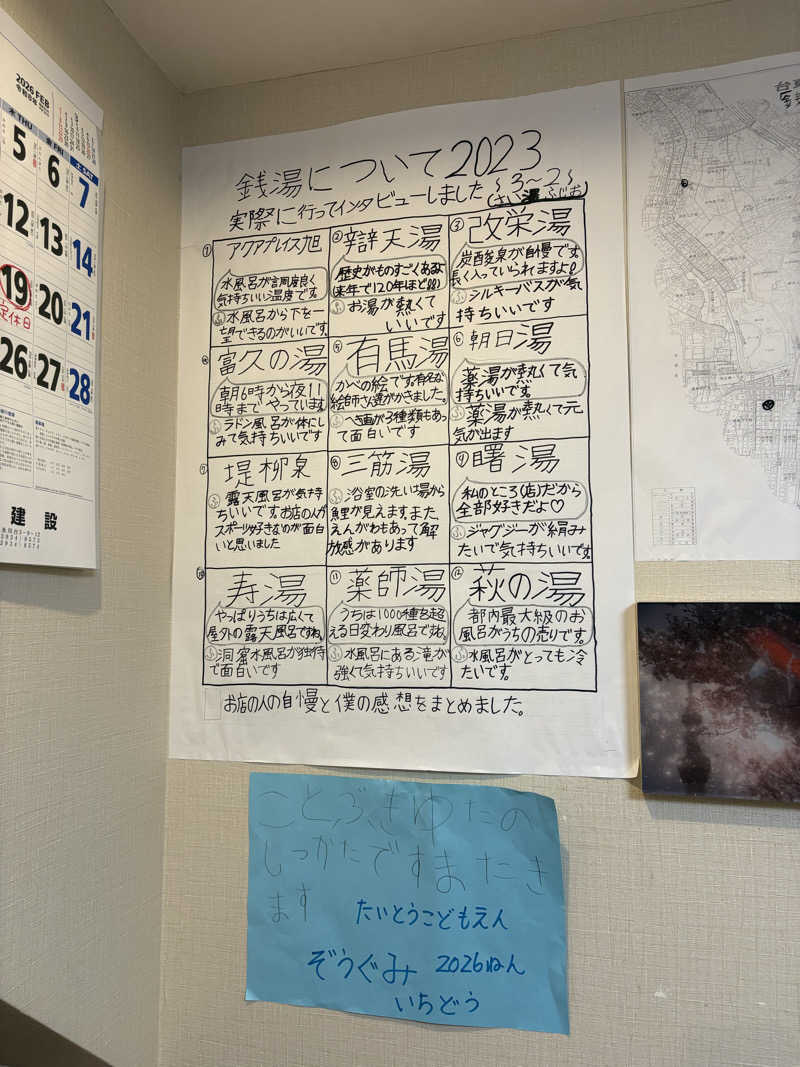 2026 FEB
令和8年
木 THU
金 FRI
土 SAT
5
6
7
12
13
14
19
20
21
定休日
26
27
28
建設
銭湯について2023
〜3〜2〜
実際に行ってインタビューしました
① アクアプレイス旭
水風呂が言周度良く
気持ちいい温度です。
水風呂から下を一
望できるのがいいです。
② 辯天湯
歴史がものすごくあるよ
来年で120年ほど!!!
お湯が熱くて
いいです
③ 改栄湯
炭酸泉が自慢です。
長く入っていられますよ!
シルキーバスが気
持ちいいです
④ 富久の湯
朝6時から夜11
時までやっています
ラドン風呂が体にし
みて気持ちいいです
⑤ 有馬湯
かべの絵です。有名な
絵師さん達がかきました。
へき画が3種類もあっ
て面白いです
⑥ 朝日湯
薬湯が熱くて気
持ちいいです。
薬湯が熱くて元
気が出ます
⑦ 堤柳泉
露天風呂が気持
ちいいです。お店の人が
スポーツ好きなのが面白
いと思いました
⑧ 三筋湯
浴室の洗い場から
鯉が見えます。また、
えんがわもあって解
放感があります
⑨ 曙湯
私のところ(店)だから
全部好きだよ♡
ジャグジーが絹み
たいで気持ちいいです。
⑩ 寿湯
やっぱりうちは広くて
屋外の露天風呂ですね。
洞窟水風呂が独特
で面白いです
⑪ 薬師湯
うちは1000種を超
える日変わり風呂ですね。
水風呂にある滝が
強くて気持ちいいです
⑫ 萩の湯
都内最大級のお
風呂がうちの売りです。
水風呂がとっても冷
たいです。
お店の人の自慢と僕の感想をまとめました。
ことぶきゆたの
しかったですまたき
ます
たいとうこどもえん
ぞうぐみ 2026ねん
いちどう